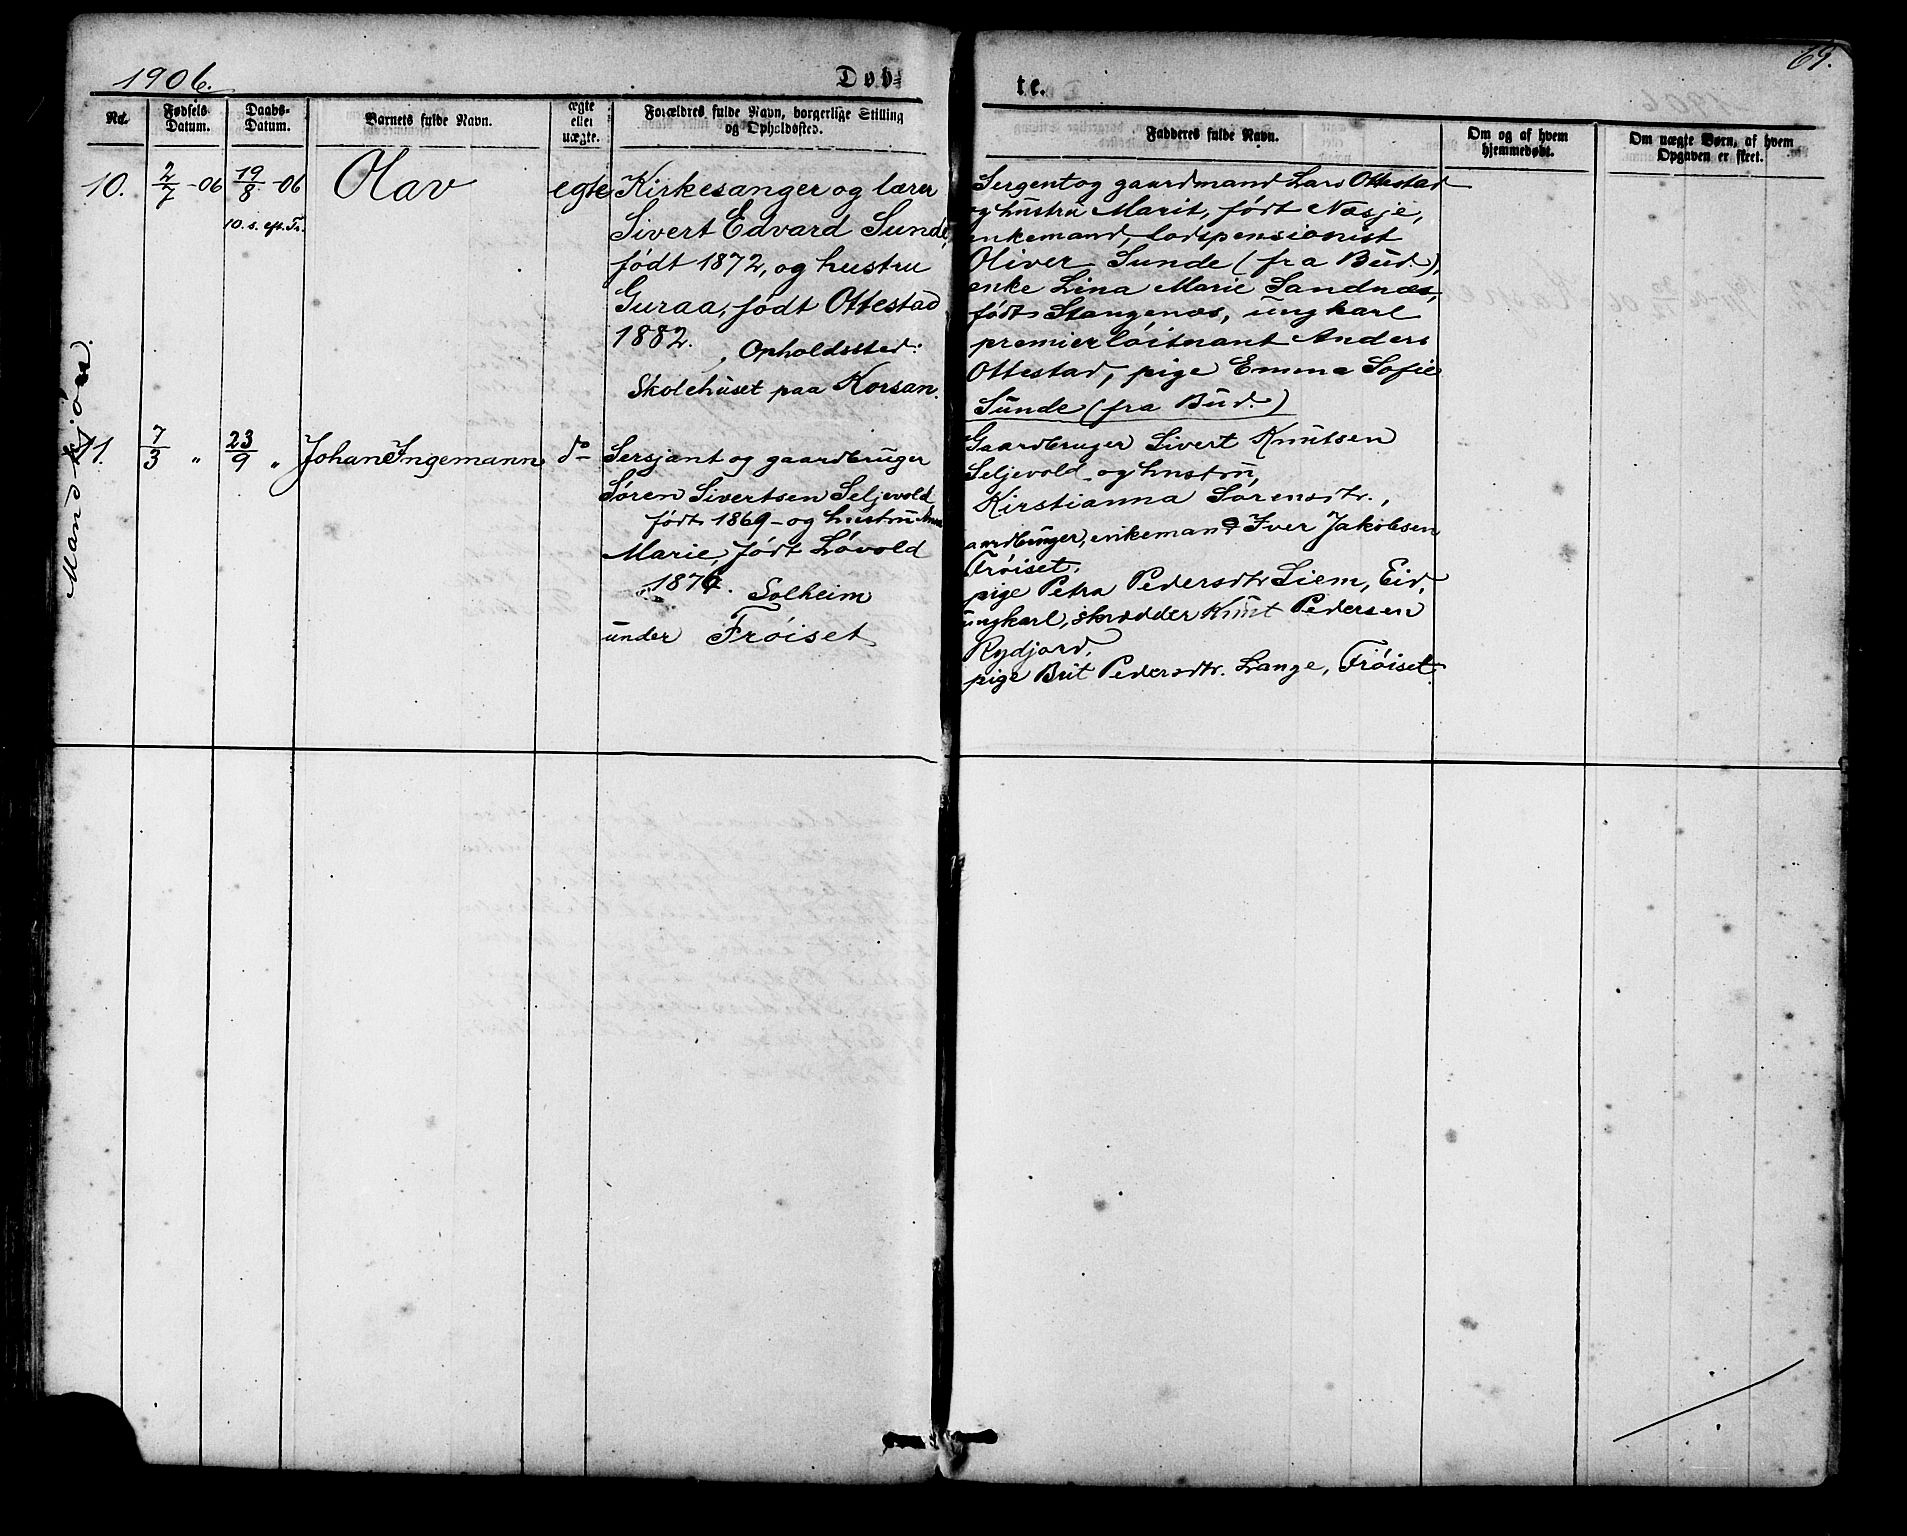 1906.
Døb=
te.
69.
No.
Fødsels Datum.
Daabs-Datum.
Barnets fulde Navn.
ægte eller uægte.
Forældres fulde Navn, borgerlige Stilling og Opholdssted.
Fadderes fulde Navn.
Om og af hvem hjemmedøbt.
Om uægte Børn, af hvem Opgaven er skeet.
Mandkjøn.
10.
2/7 -06
19/8 -06
10. s. eft. Tr.
Olav
egte
Kirkesanger og lærer
Sivert Edvard Sunde,
født 1872, og hustru
Guraa, født Ottestad
1882.
Opholdssted:
Skolehuset paa Korsan.
Sergent og gaardmand Lars Ottestad
og hustru Marit, født Næsje,
enkemand, lodspensionist
Oliver Sunde (fra Bud.),
enke Lina Marie Sandnæs,
født Stangenæs, ungkarl
premierløitnant Anders
Ottestad, pige Emma Sofie
Sunde (fra Bud.)
11.
7/3 "
23/9 "
Johan Ingemann
do
Sersjant og gaardbruger
Søren Sivertsen Seljevold
født 1869 - og hustru Anne
Marie, født Løvold
1876. Solheim
under Frøiset
Gaardbruger Sivert Knutsen
Seljevold og hustru,
Kirstianna Sørensdtr.,
aardbruger, enkemand Iver Jakobsen
Frøiset,
pige Petra Pedersdtr Liem, Eid,
ungkarl, skrædder Knut Pedersen
Rydjord,
pige Brit Pedersdtr. Lange, Frøiset.